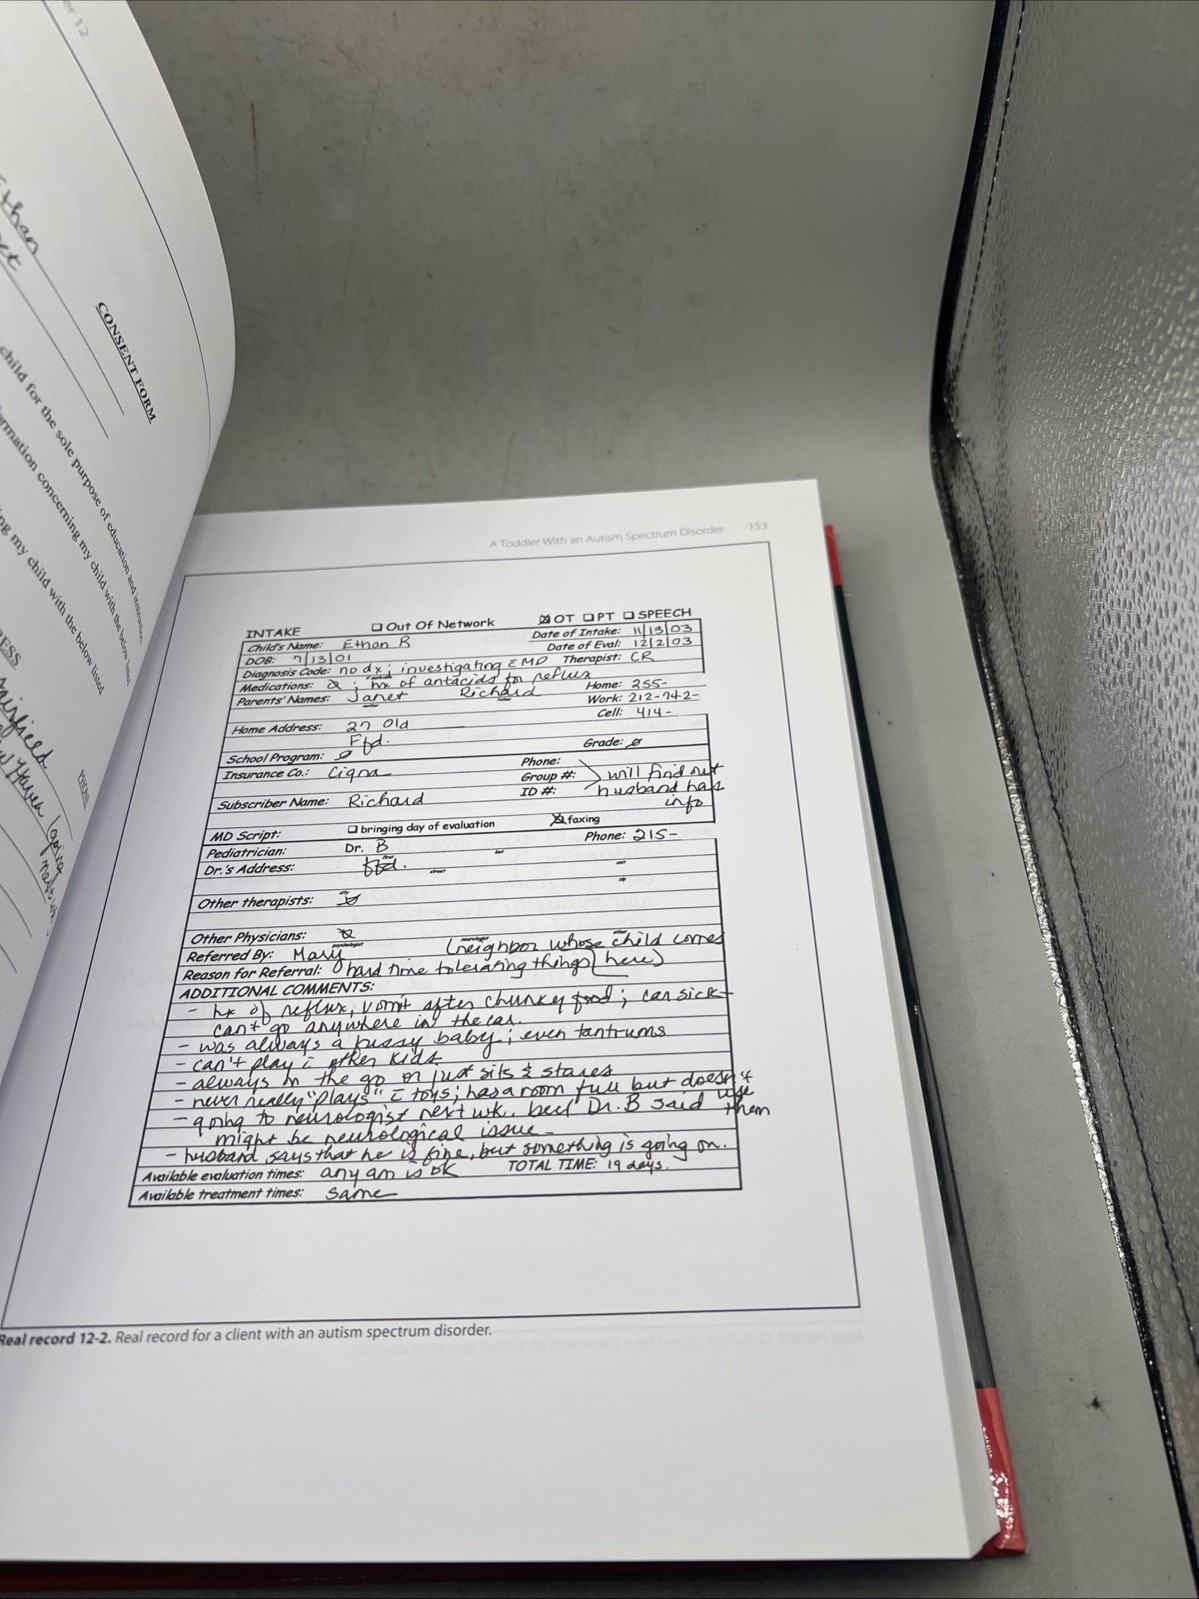 er 12
Ethan
CONSENT FORM
child for the sole purpose of education and
formation concerning my child with the below listed
ing my child with the below listed
RESS
PHONE
Fairfield
New Haven (going
next
A Toddler With an Autism Spectrum Disorder 153
INTAKE ☐ Out Of Network ☒ OT ☐ PT ☐ SPEECH
Child's Name: Ethan R Date of Intake: 11/13/03
DOB: 7/13/01 Date of Eval: 12/2/03
Diagnosis Code: no dx; investigating c̄ MD Therapist: CR
Medications: ∅; hx of antacids for reflux
Parents' Names: Janet Richard Home: 255-
Work: 212-742-
Cell: 414-
Home Address: 27 Old
Ffd.
School Program: ∅ Grade: ∅
Insurance Co.: Cigna Phone:
Group #: will find out
ID #: husband has
Subscriber Name: Richard info
MD Script: ☐ bringing day of evaluation ☒ faxing
Pediatrician: Dr. B Phone: 215-
first last
Dr.'s Address: ffd.
street
Other therapists: ∅
Other Physicians: ∅
psychologist neurologist other
Referred By: Mary (neighbor whose child comes
Reason for Referral: hard time tolerating things here)
ADDITIONAL COMMENTS:
- hx of reflux, vomit after chunky food; car sick-
can't go anywhere in the car.
- was always a fussy baby; even tantrums
- can't play c̄ other kids
- always on the go or just sits & stares
- never really "plays" c̄ toys; has a room full but doesn't use them
- going to neurologist next wk. bec/ Dr. B said
might be neurological issue-
- husband says that he is fine, but something is going on.
Available evaluation times: any am is ok TOTAL TIME: 19 days.
Available treatment times: same
Real record 12-2. Real record for a client with an autism spectrum disorder.